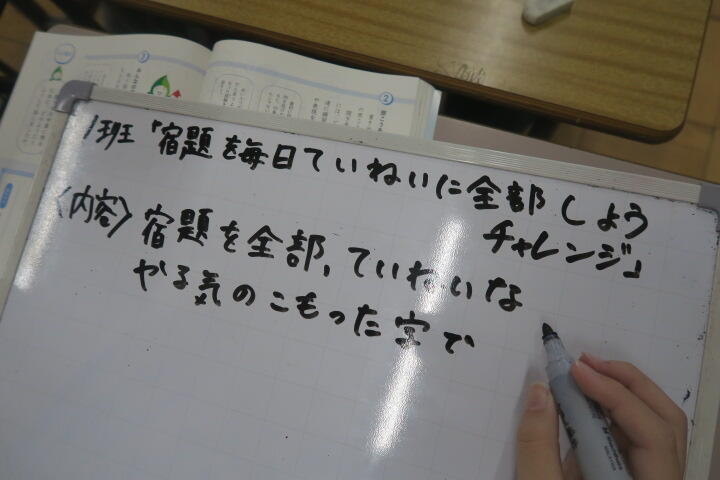 1班「宿題を毎日ていねいに全部しよう
チャレンジ」
〈内容〉宿題を全部，ていねいな
やる気のこもった字で